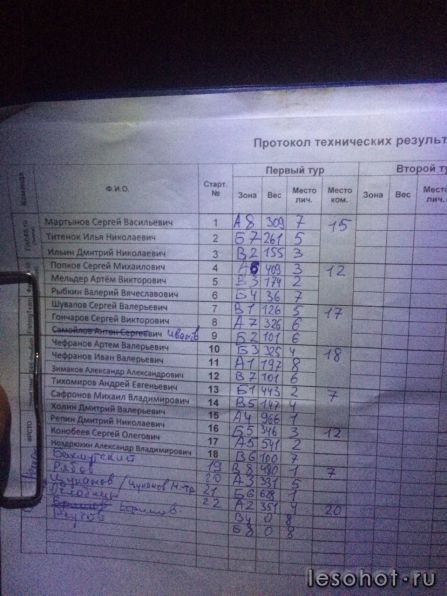 Протокол технических результ
Команда Ф.И.О. Старт. № Первый тур Второй ту
Зона Вес Место лич. Место ком. Зона Вес
Мартынов Сергей Васильевич 1 А8 309 7 15
Титенок Илья Николаевич 2 Б7 261 5
Ильин Дмитрий Николаевич 3 В2 155 3
Попков Сергей Михаилович 4 А6 409 3 12
Мельдер Артём Викторович 5 В3 174 2
Рыбкин Валерий Вячеславович 6 Б4 36 7
Шувалов Сергей Валерьевич 7 В1 126 5 17
Гончаров Сергей Викторович 8 А7 326 6
Самойлов Антон Сергеевич Иванов 9 Б2 101 6
Чефранов Артем Валерьевич 10 Б3 325 4 18
Чефранов Иван Валерьевич 11 А1 197 8
Зимаков Александр Александрович 12 В7 101 6
Тихомиров Андрей Евгеньевич 13 Б1 443 2 7
Сафронов Михаил Владимирович 14 В5 147 4
Холин Дмитрий Валерьевич 15 А4 966 1
Репин Дмитрий Николаевич 16 Б5 346 3 12
Конобеев Сергей Олегович 17 А5 541 2
Ноздрюхин Александр Владимирович 18 В6 100 7
19 В8 490 1 7
Рябов 20 А3 331 5
21 Б6 628 1
22 А2 351 4 20
В4 0 8
Б8 0 8
lesohot.ru